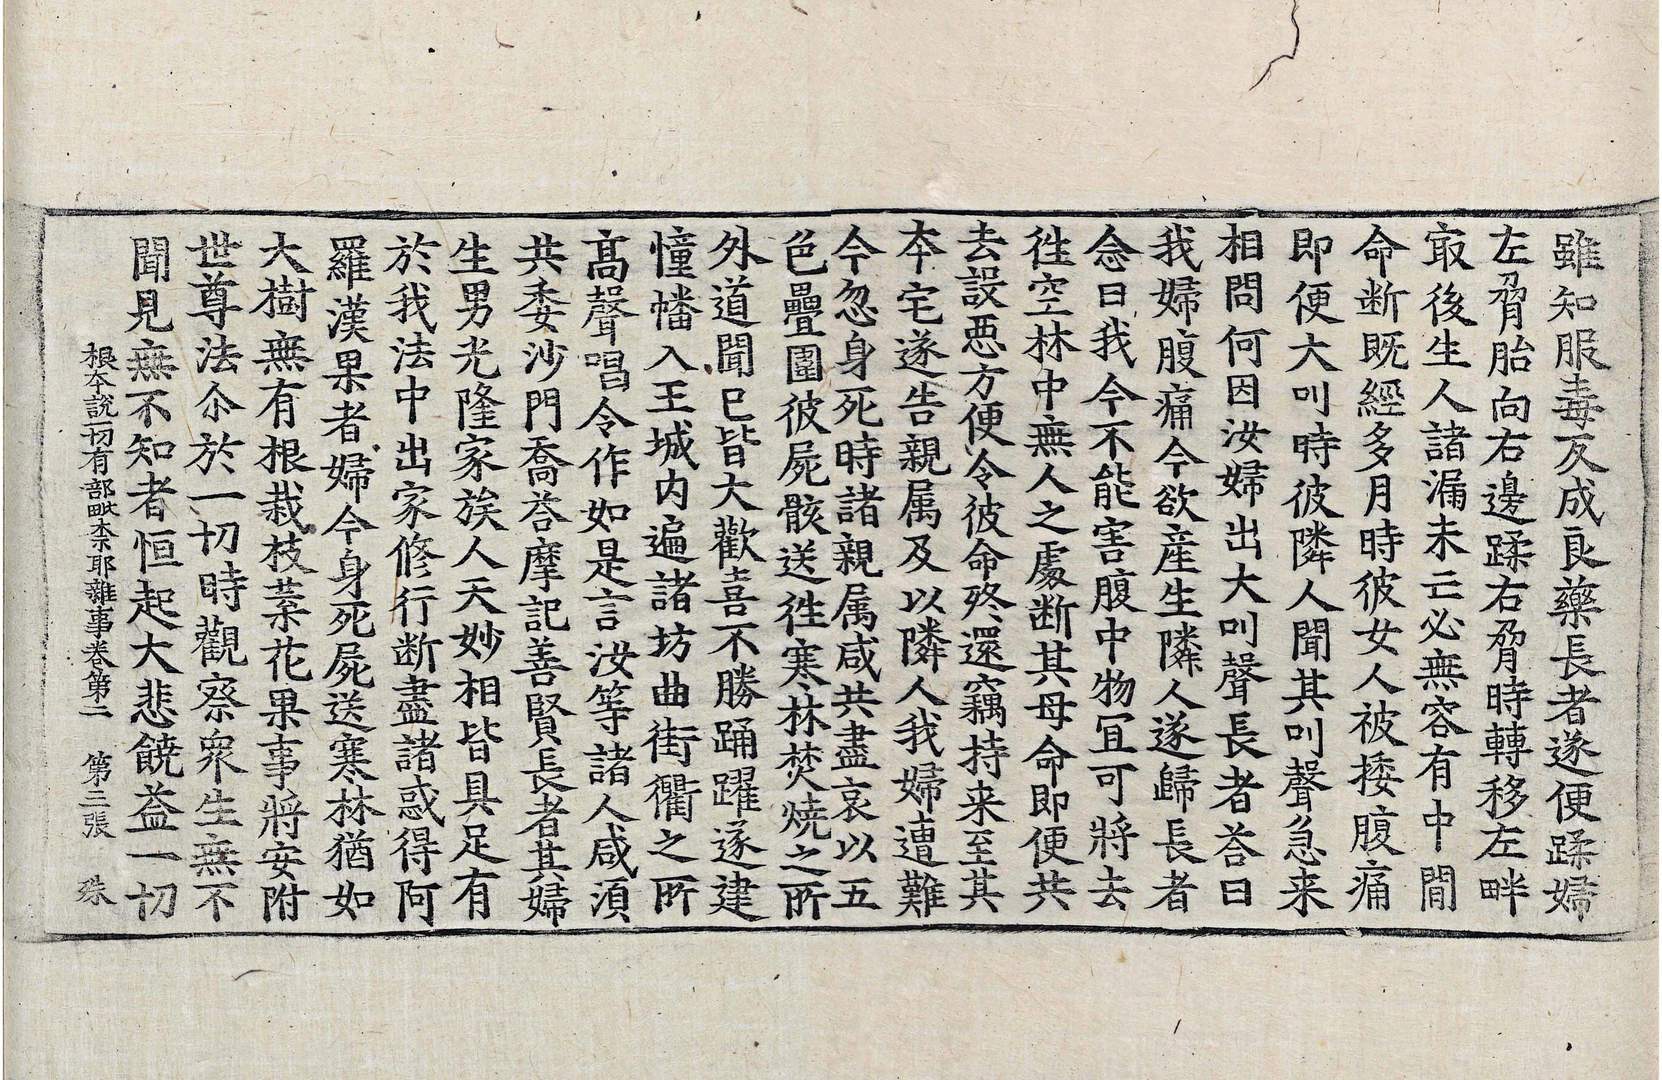 雖知服毒反成良藥長者遂便蹂婦
左脅胎向右邊蹂右脅時轉移左畔
㝡後生人諸漏未亡必無容有中間
命断既經多月時彼女人被捼腹痛
即便大叫時彼隣人聞其叫聲急来
相問何因汝婦出大叫聲長者荅曰
我婦腹痛今欲産生隣人遂歸長者
念曰我今不能害腹中物冝可將去
徃空林中無人之處断其母命即便共
去設惡方便令彼命終還竊持来至其
本宅遂告親属及以隣人我婦遭難
今忽身死時諸親属咸共盡哀以五
色疊圍彼屍骸送徃寒林焚燒之所
外道聞已皆大歡喜不勝踊躍遂建
憧幡入王城内遍諸坊曲街衢之所
髙聲唱令作如是言汝等諸人咸湏
共委沙門喬荅摩記善賢長者其婦
生男光隆家族人天妙相皆具足有
於我法中出家修行断盡諸惑得阿
羅漢果者婦今身死屍送寒林猶如
大樹無有根栽枝葉花果事將安附
世尊法尒於一切時觀察衆生無不
聞見無不知者恒起大悲饒益一切
根本說一切有部毗柰耶雜事卷第二　第三張　殊